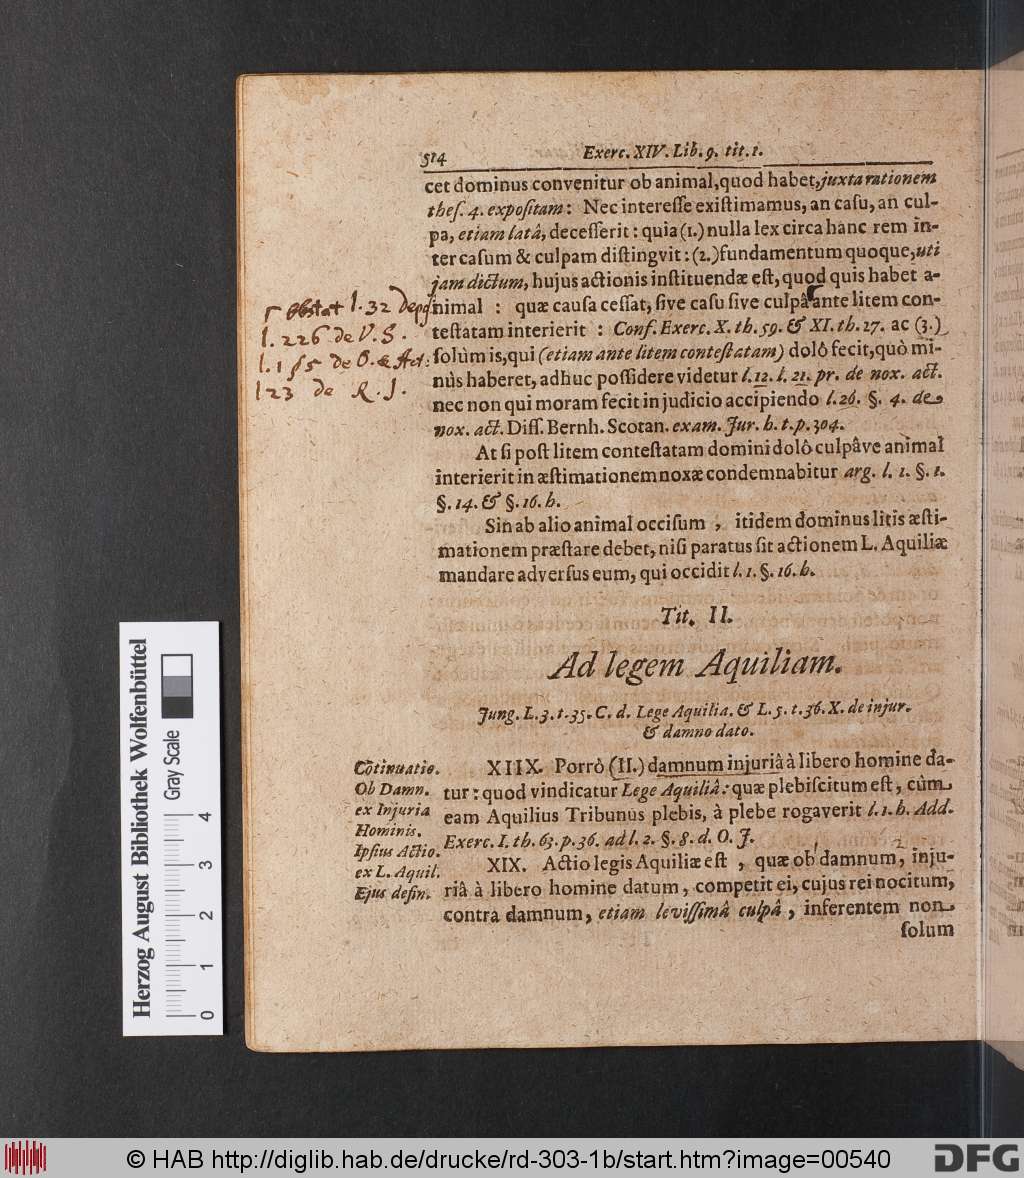 514
Exerc. XIV. Lib. 9. tit. 1.
cet dominus convenitur ob animal, quod habet, juxta rationem
thes. 4. expositam: Nec interesse existimamus, an casu, an cul-
pa, etiam latâ, decesserit: quia (1.) nulla lex circa hanc rem in-
ter casum & culpam distingvit: (2.) fundamentum quoque, uti
jam dictum, hujus actionis instituendæ est, quod quis habet a-
nimal : quæ causa cessat, sive casu sive culpâ ante litem con-
testatam interierit : Conf. Exerc. X. th. 59. & XI. th. 27. ac (3.)
solùm is, qui (etiam ante litem contestatam) dolô fecit, quò mi-
nùs haberet, adhuc possidere videtur l. 12. l. 21. pr. de nox. act.
nec non qui moram fecit in judicio accipiendo l. 26. §. 4. de
nox. act. Diss. Bernh. Scotan. exam. Jur. h. t. p. 304.
At si post litem contestatam domini dolô culpâve animal
interierit in æstimationem noxæ condemnabitur arg. l. 1. §. 1.
§. 14. & §. 16. h.
Sin ab alio animal occisum , itidem dominus litis æsti-
mationem præstare debet, nisi paratus sit actionem L. Aquiliæ
mandare adversus eum, qui occidit l. 1. §. 16. h.
obstat l. 32
l. 226 de V. S.
l. 1 § 5 de O. & Act:
l 23 de R. J.
Tit. II.
Ad legem Aquiliam.
Jung. L. 3. t. 35. C. d. Lege Aquilia. & L. 5. t. 36. X. de injur.
& damno dato.
Cõtinuatio.
Ob Damn.
ex Injuria
Hominis.
Ipsius Actio.
ex L. Aquil.
Ejus defin.
XIIX. Porrò (II.) damnum injuriâ à libero homine da-
tur: quod vindicatur Lege Aquiliâ: quæ plebiscitum est, cùm
eam Aquilius Tribunus plebis, à plebe rogaverit l. 1. h. Add.
Exerc. I. th. 63. p. 36. ad l. 2. §. 8. d. O. J.
XIX. Actio legis Aquiliæ est , quæ ob damnum, inju-
riâ à libero homine datum, competit ei, cujus rei nocitum,
contra damnum, etiam levissimâ culpâ, inferentem non
solum
Herzog August Bibliothek Wolfenbüttel
Gray Scale
0 1 2 3 4
© HAB http://diglib.hab.de/drucke/rd-303-1b/start.htm?image=00540
DFG